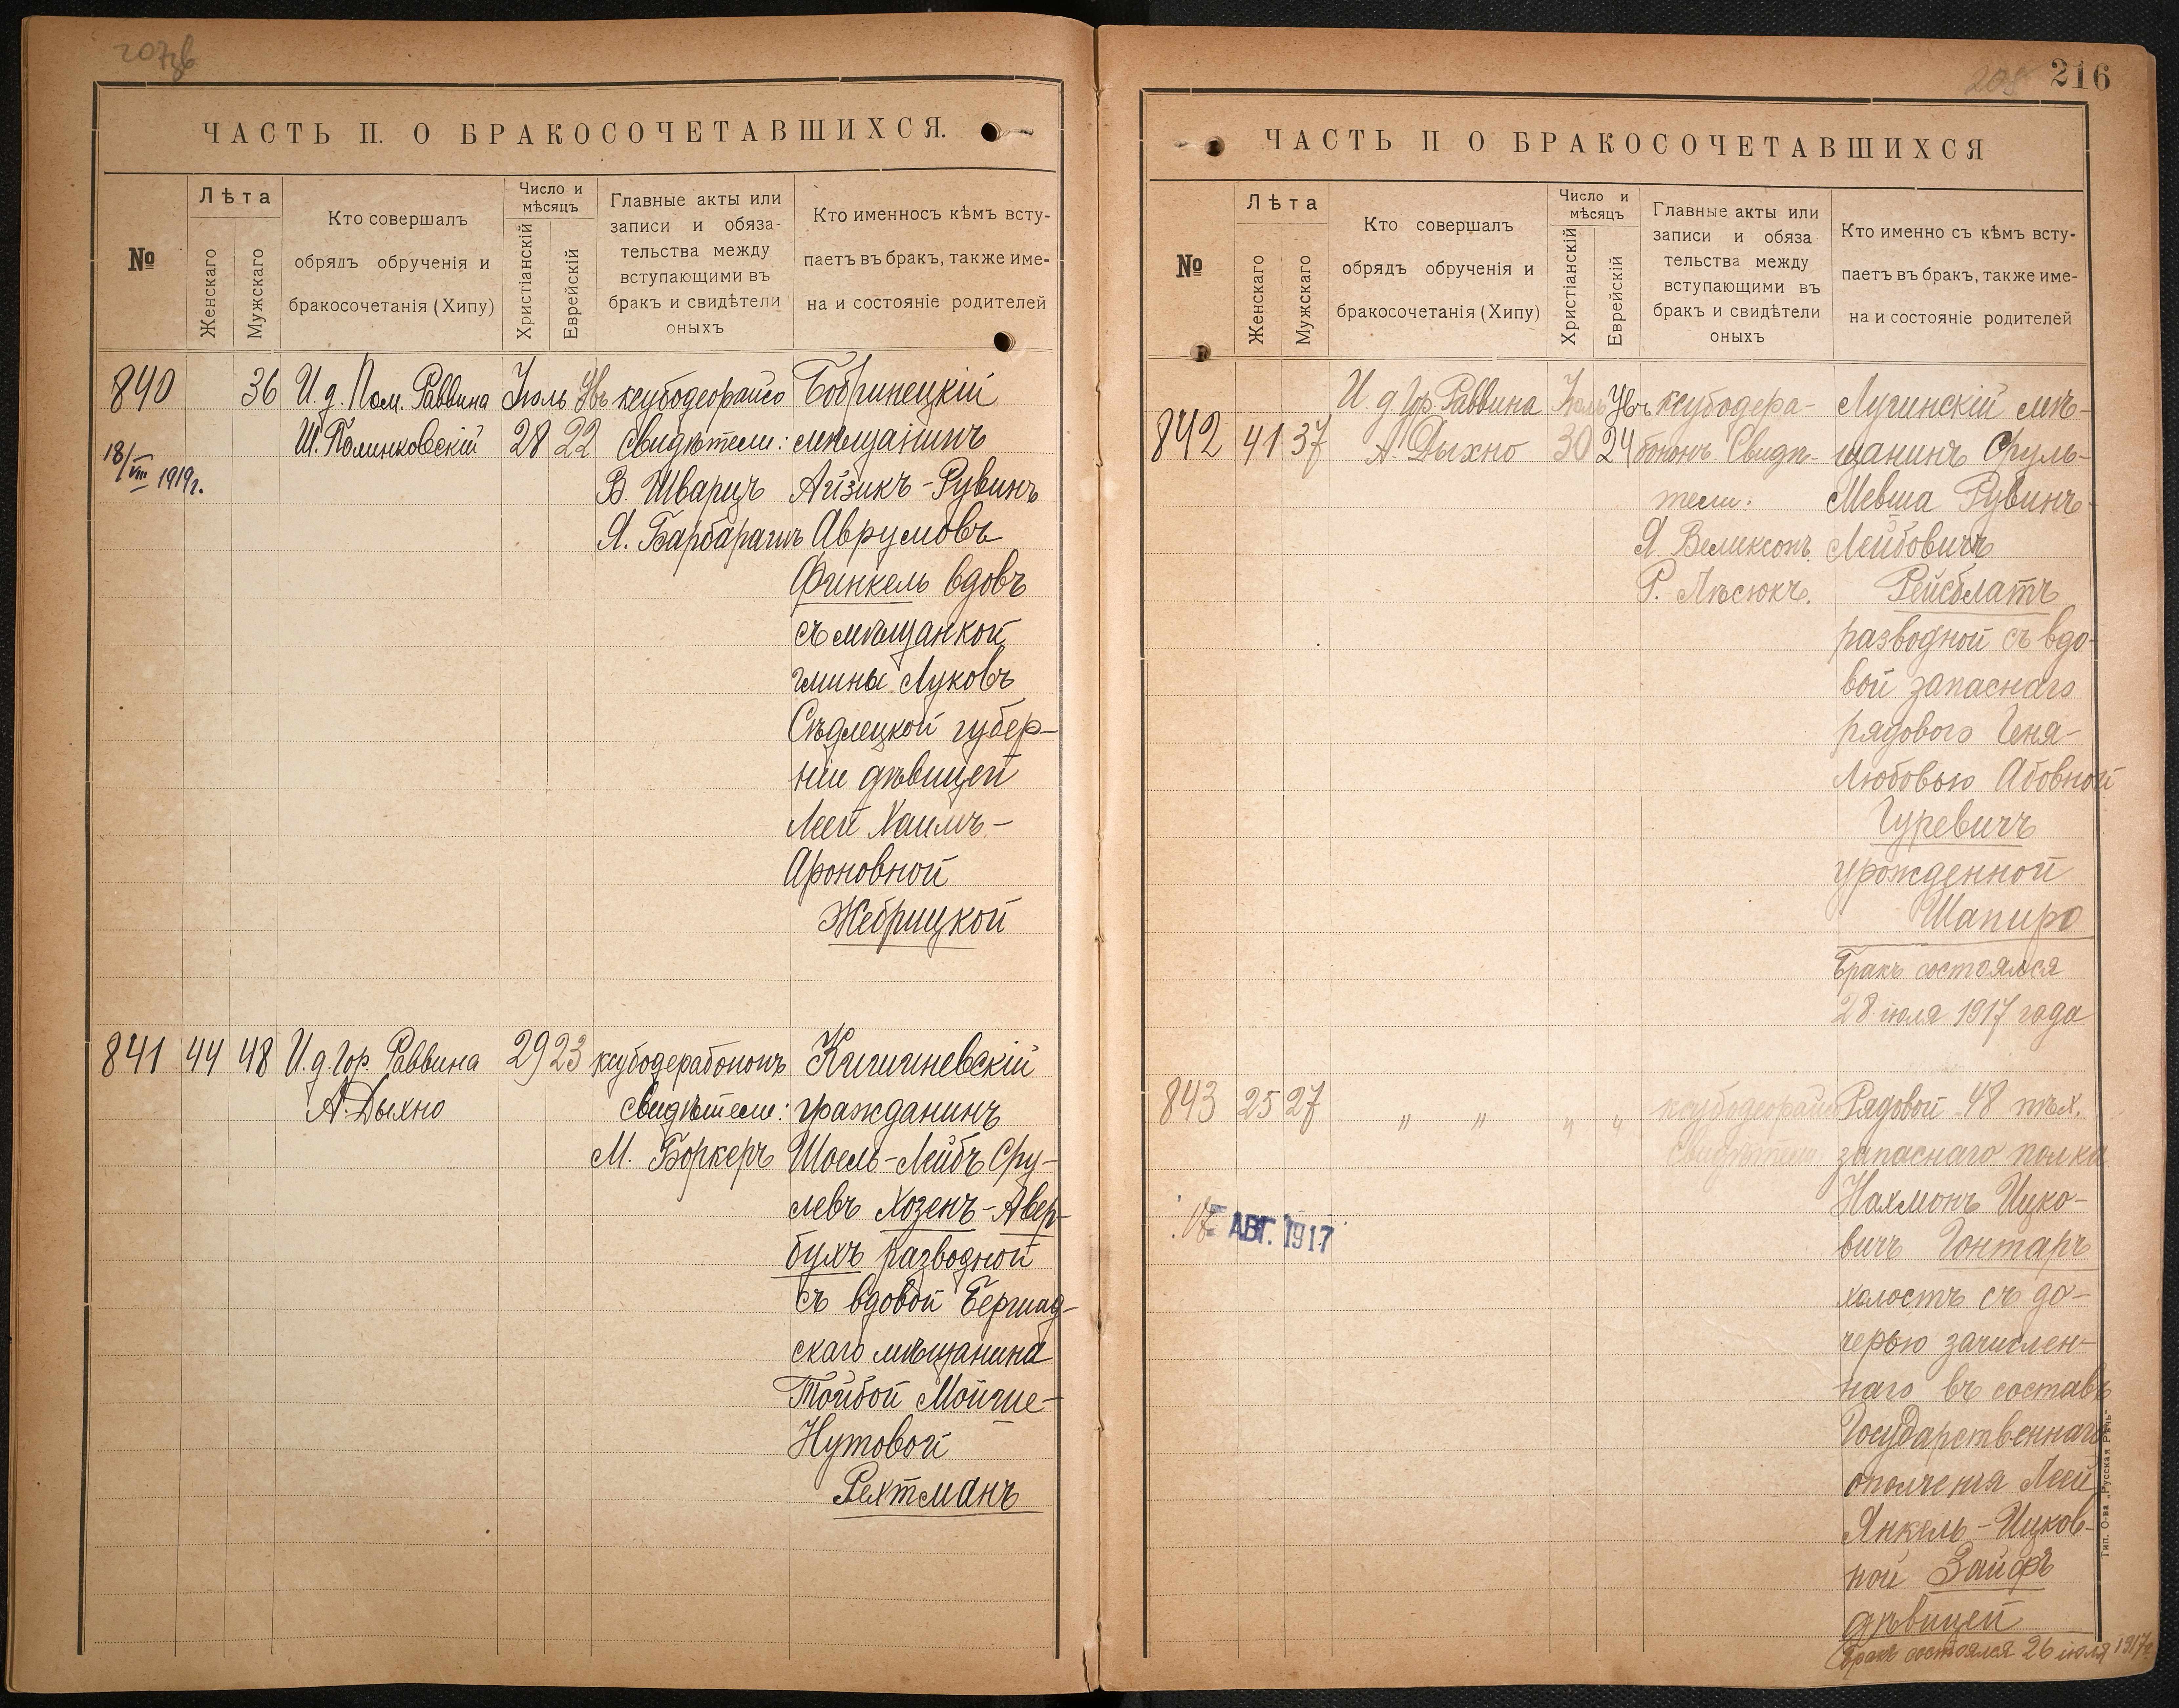 216
ЧАСТЬ II. О БРАКОСОЧЕТАВШИХСЯ.
№
Лѣта
Женскаго
Мужскаго
Кто совершалъ
обрядъ обрученія и
бракосочетанія (Хипу)
Число и
мѣсяцъ
Христіанскій
Еврейскій
Главные акты или
записи и обяза-
тельства между
вступающими въ
бракъ и свидѣтели
оныхъ
Кто именносъ кѣмъ всту-
паетъ въ бракъ, также име-
на и состояніе родителей
840
18/VIII 1919г.
36
И. д. Пом. Раввина
Ш. Полинковскій
Іюль
28
Увъ
22
ксубодеорайсо
свидѣтели:
В. Шварцъ
Я. Барбарашъ
Бобринецкій
мѣщанинъ
Айзикъ-Рувинъ
Аврумовъ
Финкель вдовъ
съ мѣщанкой
гмины Луковъ
Сѣдлецкой губер-
ніи дѣвицей
Леей Хаимъ-
Ароновной
Жебрицкой
841
44
48
И. д. Гор. Раввина
А. Дыхно
29
23
ксубодерабононъ
свидѣтели:
М. Боркеръ
Кишиневскій
гражданинъ
Шоель-Лейбъ Сру-
левъ Хозенъ-Авер-
бухъ разводной
съ вдовой Бершад-
скаго мѣщанина
Тойбой Мойше-
Нутовой
Рехтманъ
ЧАСТЬ II О БРАКОСОЧЕТАВШИХСЯ
№
Лѣта
Женскаго
Мужскаго
Кто совершалъ
обрядъ обрученія и
бракосочетанія (Хипу)
Число и
мѣсяцъ
Христіанскій
Еврейскій
Главные акты или
записи и обяза
тельства между
вступающими въ
бракъ и свидѣтели
оныхъ
Кто именно съ кѣмъ всту-
паетъ въ бракъ, также име-
на и состояніе родителей
842
41
37
И. д Гор. Раввина
А. Дыхно
Іюль
30
Увъ
24
ксубодера-
бононъ. Свидѣ-
тели:
Я Великсонъ.
Р. Лѣсюкъ.
Лугинскій мѣ-
щанинъ Сруль-
Мевша Рувинъ-
Лейбовичъ
Рейсблатъ
разводной съ вдо-
вой запаснаго
рядового Геня-
Любовью Абовной
Гуревичъ
урожденной
Шапиро
Бракъ состоялся
28 іюля 1917 года
843
25
27
" "
"
"
ксубодеорайсо
свидѣтели
АВГ. 1917
Рядовой 48 пѣх.
запаснаго полка
Нахмонъ Ицко-
вичъ Гонтаръ
холостъ съ до-
черью зачислен-
наго въ составъ
Государственнаго
ополченія Леей
Янкель-Ицков-
ной Зайфъ
дѣвицей
Бракъ состоялся 26 іюля 1917г
Тип. О-ва „Русская Рѣчь“